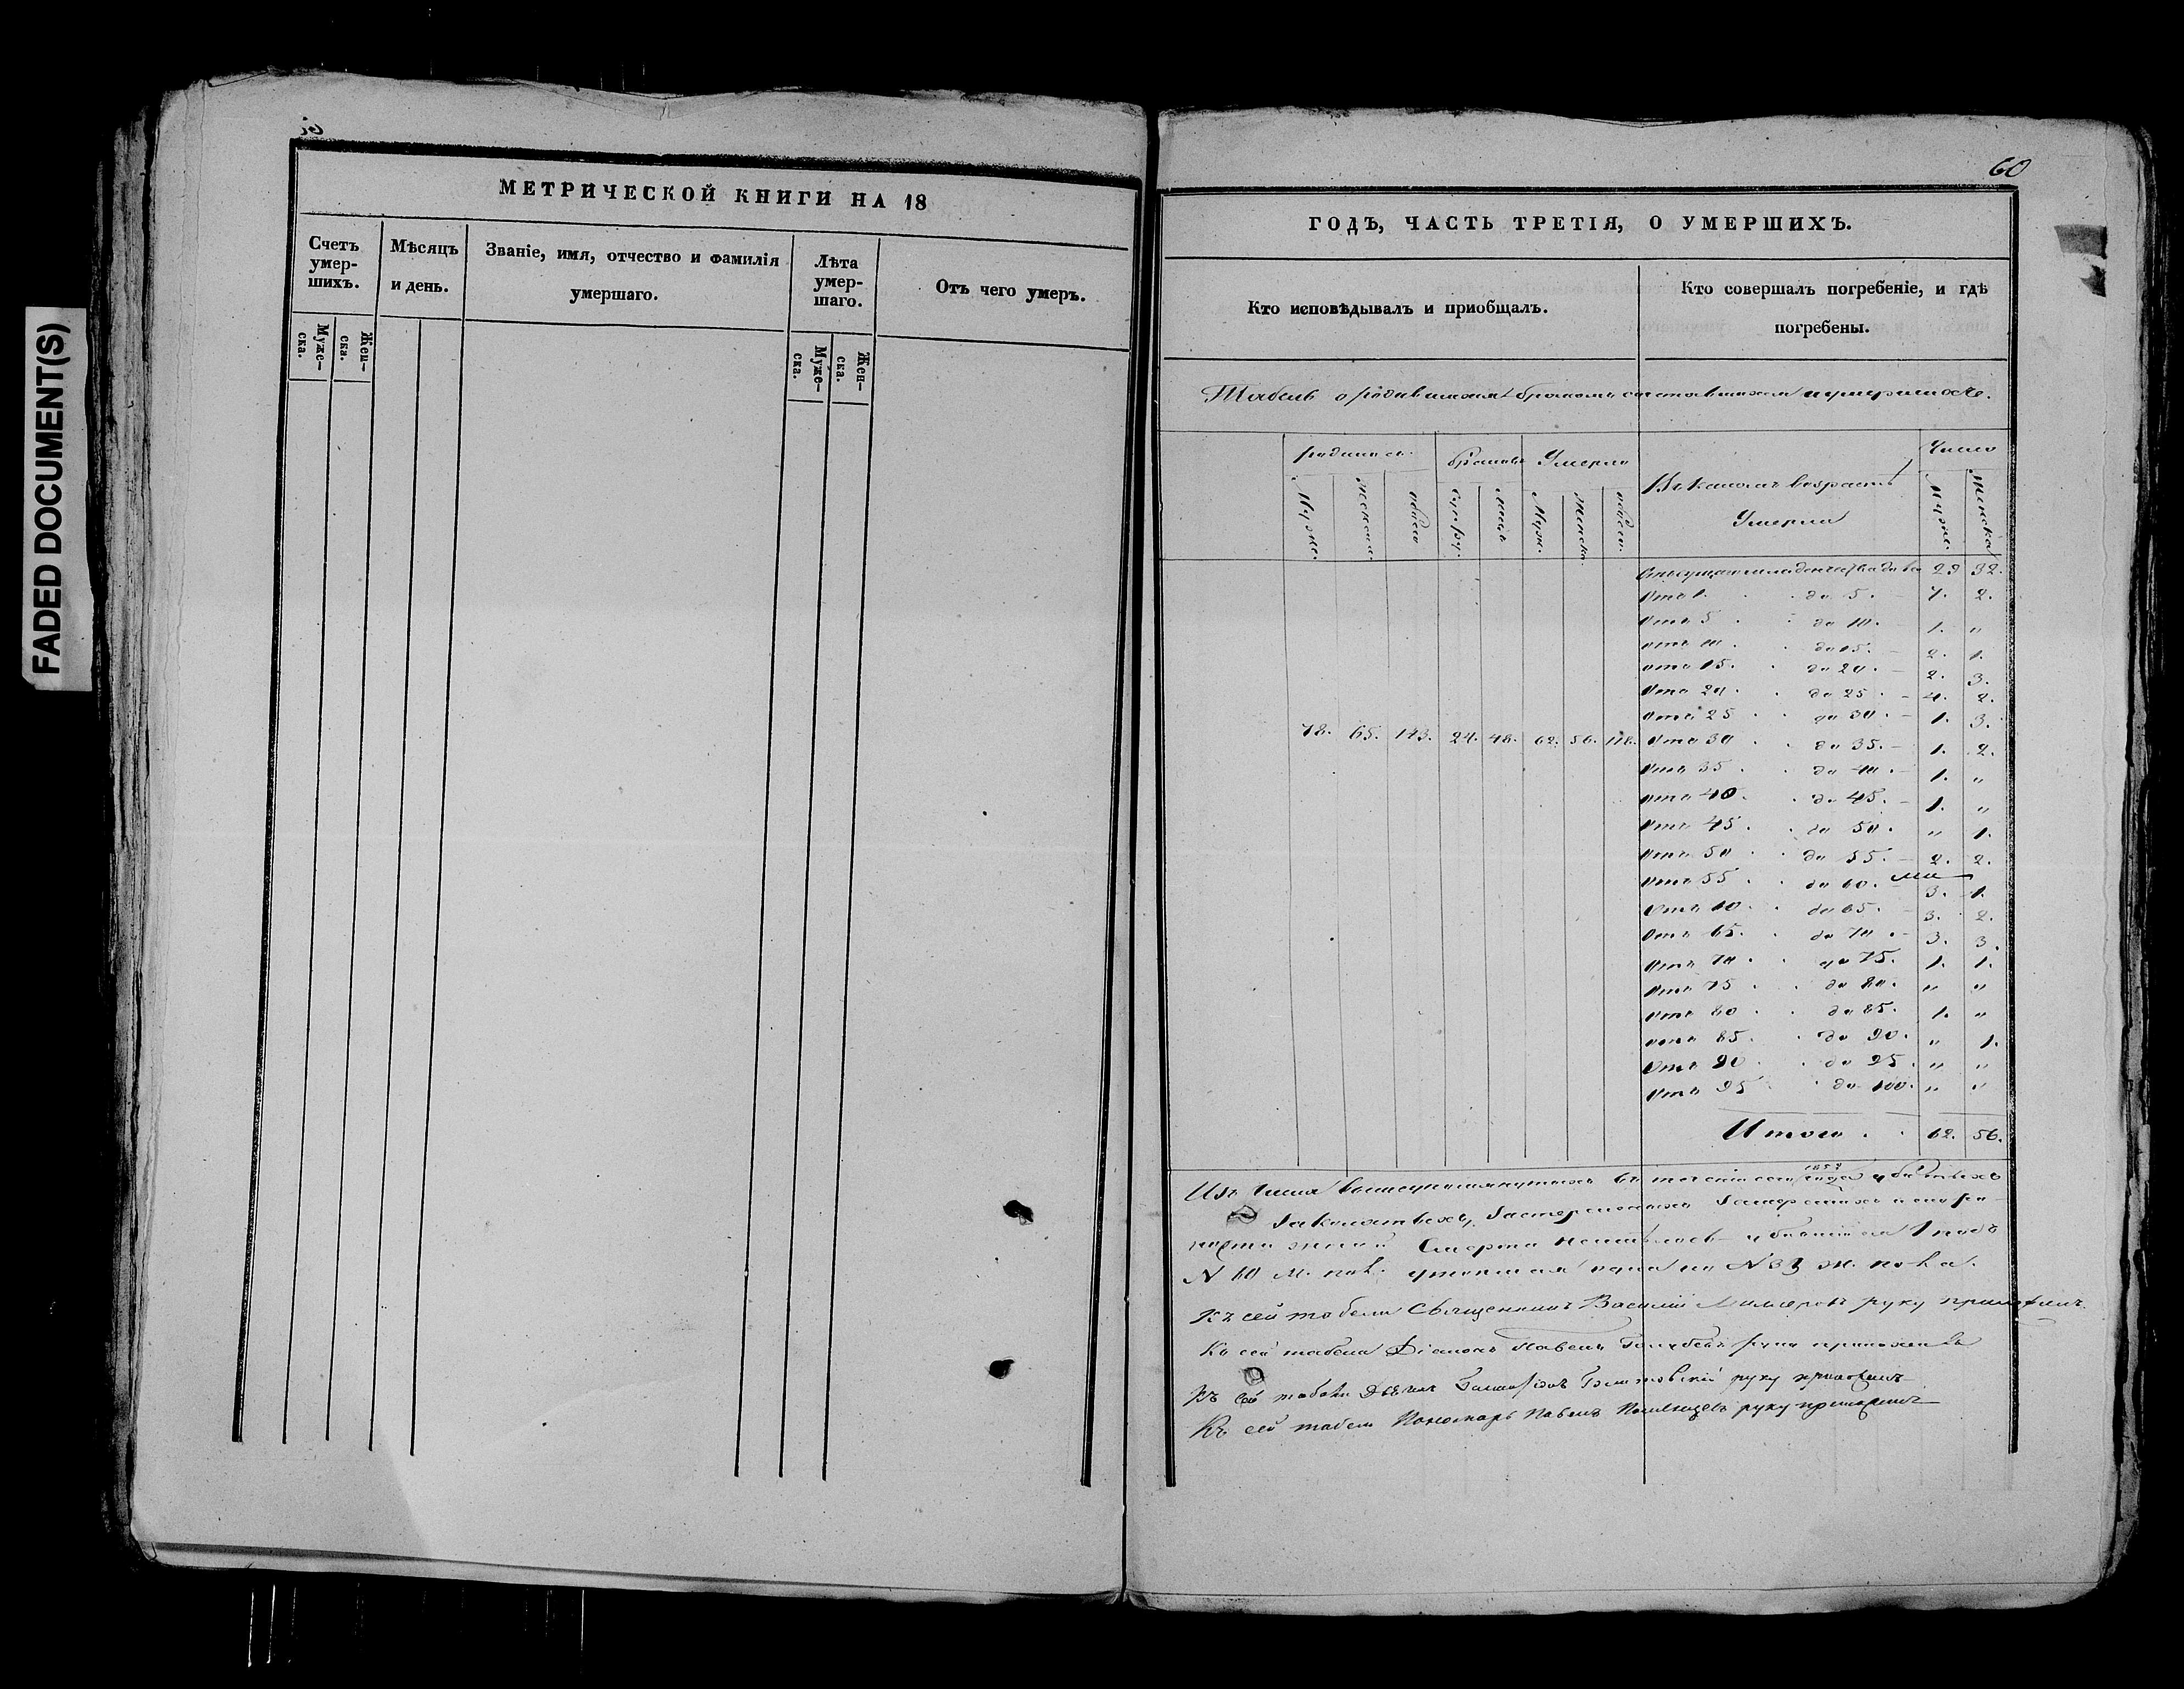 FADED DOCUMENT(S)
МЕТРИЧЕСКОЙ КНИГИ НА 18
Счетъ умер-шихъ.
Мѣсяцъ и день.
Званіе, имя, отчество и фамилія умершаго.
Лѣта умер-шаго.
Отъ чего умеръ.
Муже-ска.
Жен-ска.
Муже-ска.
Жен-ска.
60
ГОДЪ, ЧАСТЬ ТРЕТІЯ, О УМЕРШИХЪ.
Кто исповѣдывалъ и приобщалъ.
Кто совершалъ погребеніе, и гдѣ погребены.
Табель о родившихся бракомъ сочетавшихся и умершихъ.
родилось
браковъ
Умерло
Въ какомъ возрастѣ
Умерли
Число
Муже.
женска.
обоего
супру.
лицъ
Муж.
Женска
обоего.
Муже.
Женска
78. 65. 143. 24. 48. 62. 56. 118.
29 32.
Отъ 1. до 5. 7. 2.
Отъ 5 до 10. 1. "
отъ 10. до 15. 2. 1.
отъ 15. до 20. 2. 3.
Отъ 20. до 25. 4. 2.
Отъ 25 до 30. 1. 3.
Отъ 30 до 35. 1. 2.
Отъ 35 до 40. 1. "
Отъ 40. до 45. 1. "
Отъ 45 до 50. " 1.
Отъ 50 до 55. 2. 2.
Отъ 55 до 60. 3. 1.
Отъ 60. до 65. 3. 2.
Отъ 65. до 70. 3. 3.
Отъ 70 до 75. 1. 1.
Отъ 75 до 80. " "
Отъ 80 до 85. 1. "
отъ 85. до 90. " 1.
Отъ 90 до 95. " "
Отъ 95 до 100. " "
Итого 62. 56.
Изъ числа вышеупомянутыхъ въ теченіи сего года убитыхъ
смерти
N 60 м. пол. утопшая одна по N 33 ж. пола.
Къ сей табели Священникъ Василій руку приложилъ.
Къ сей табели Діаконъ Павелъ Голубевъ руку приложилъ
Къ сей табели руку приложилъ
Къ сей табели Пономарь Павелъ руку приложилъ